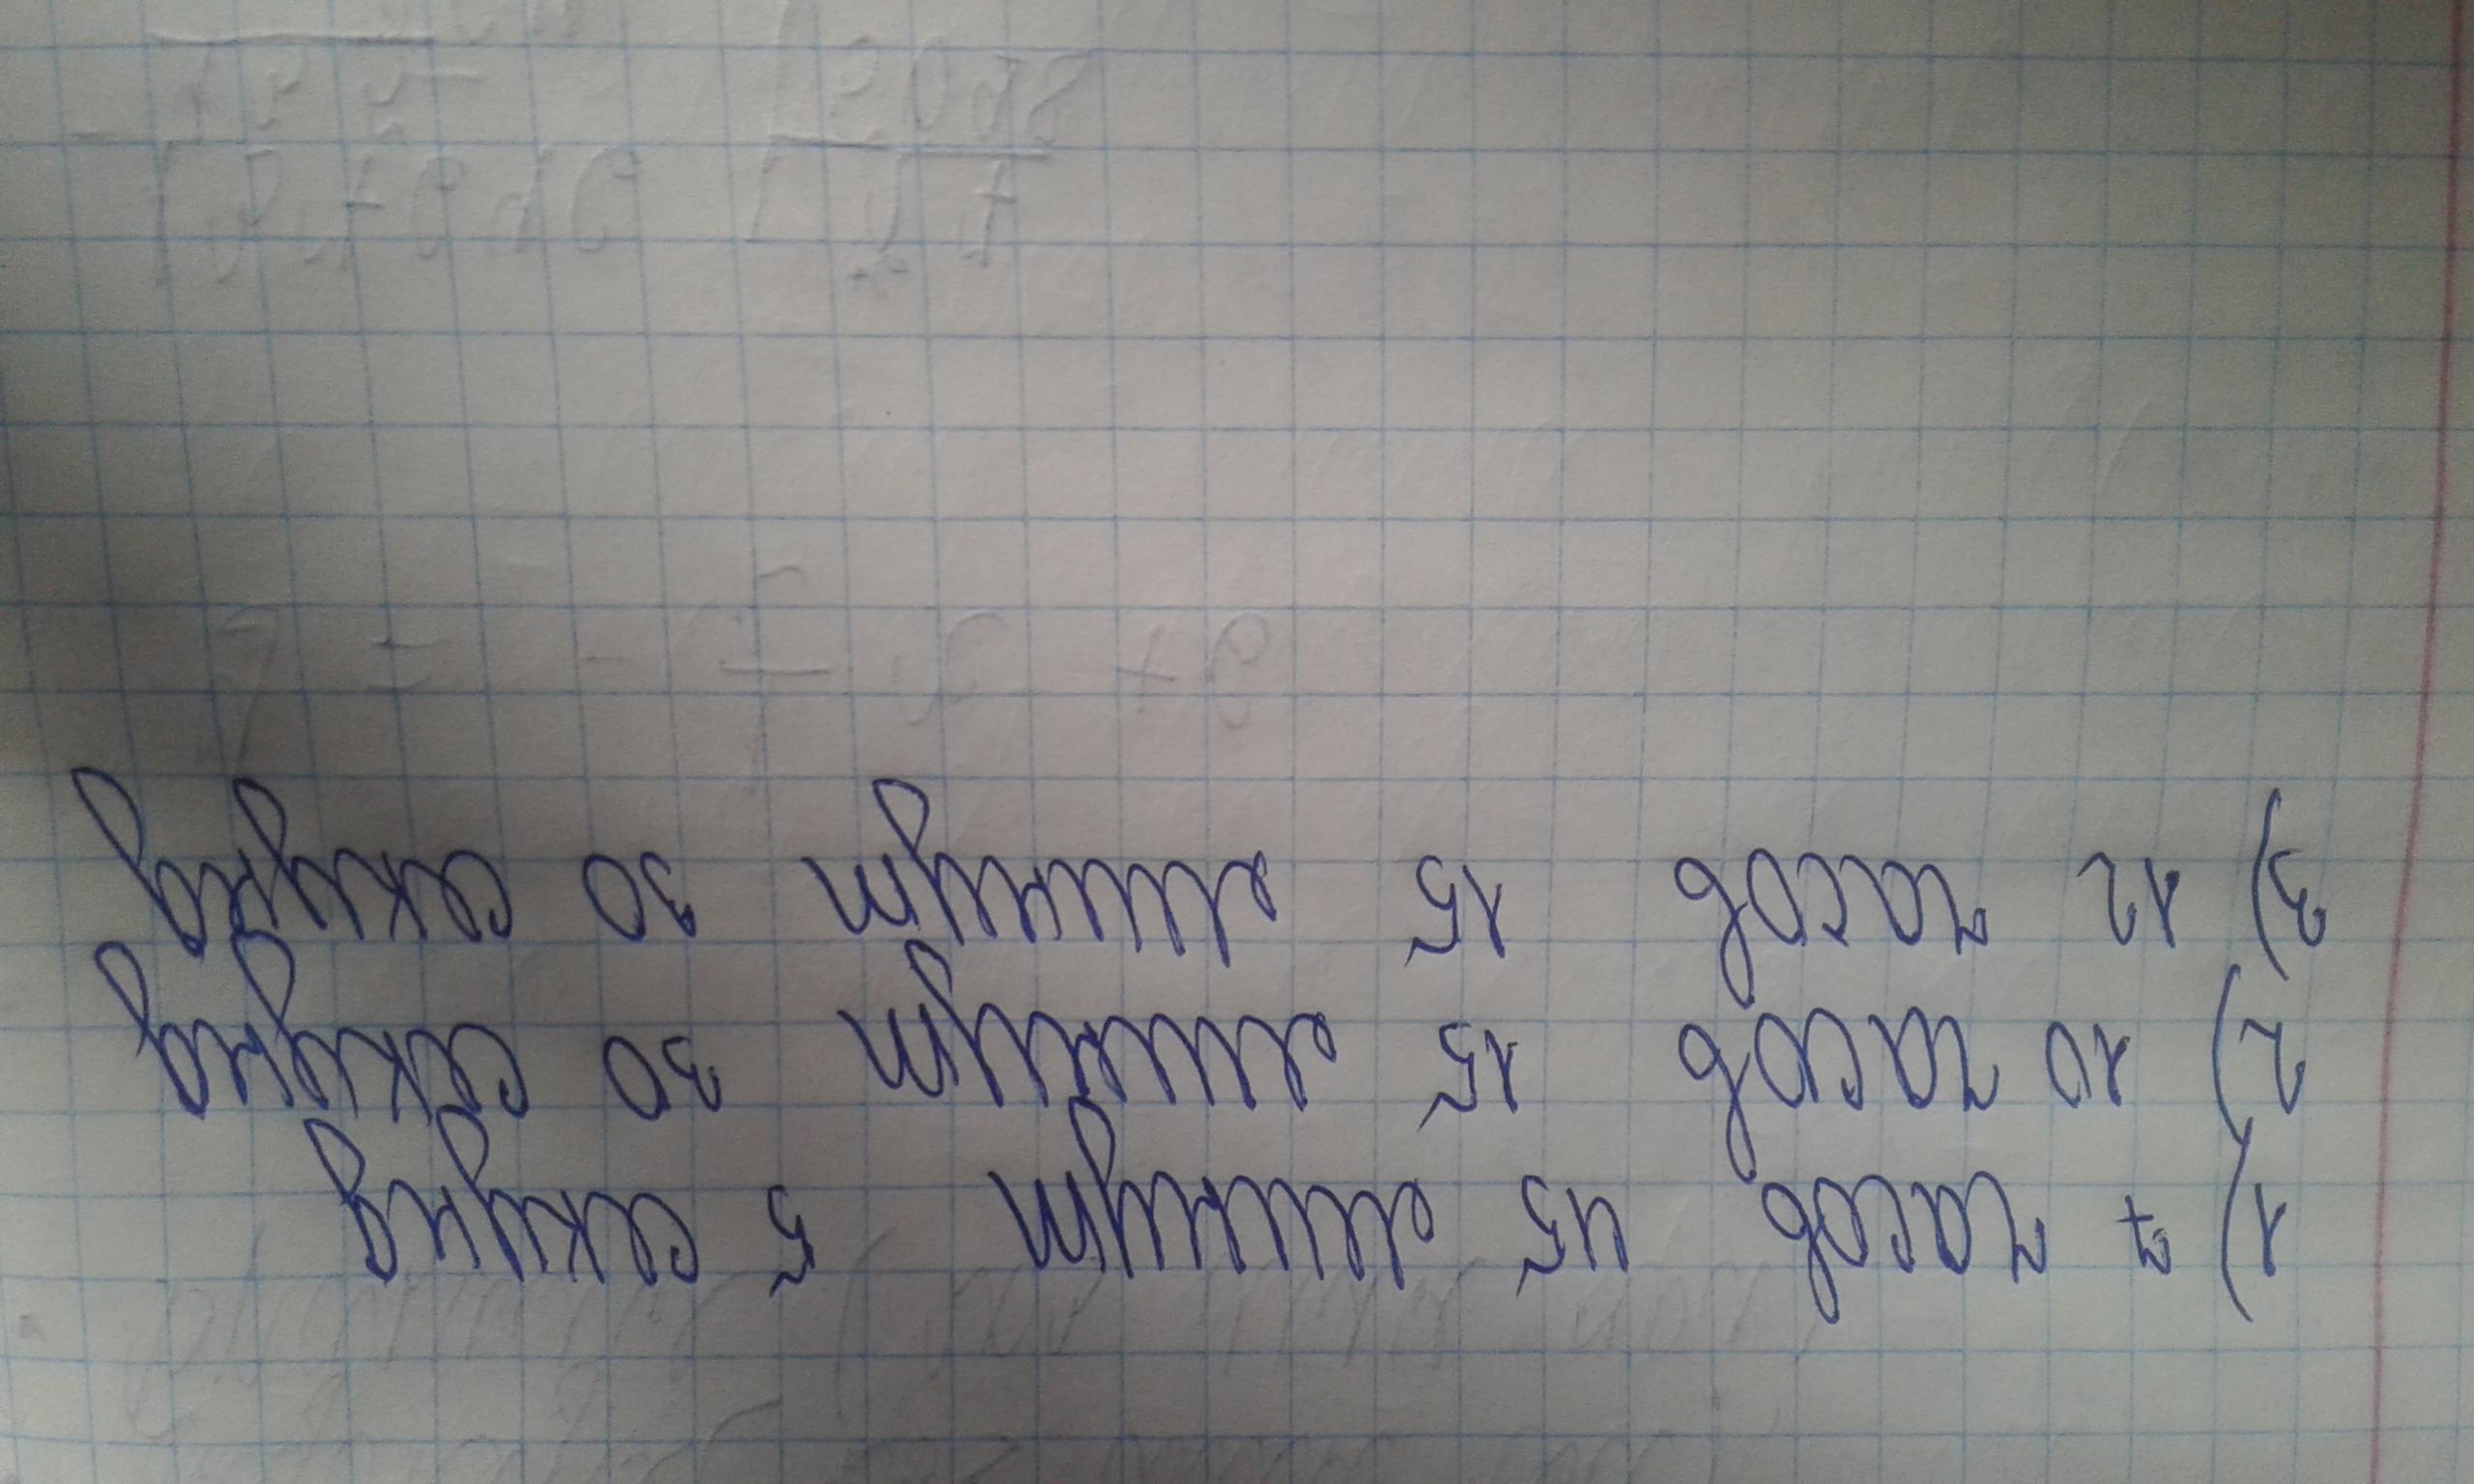 1) 7 часов 45 минут 5 секунд
2) 10 часов 15 минут 30 секунд
3) 12 часов 15 минут 30 секунд